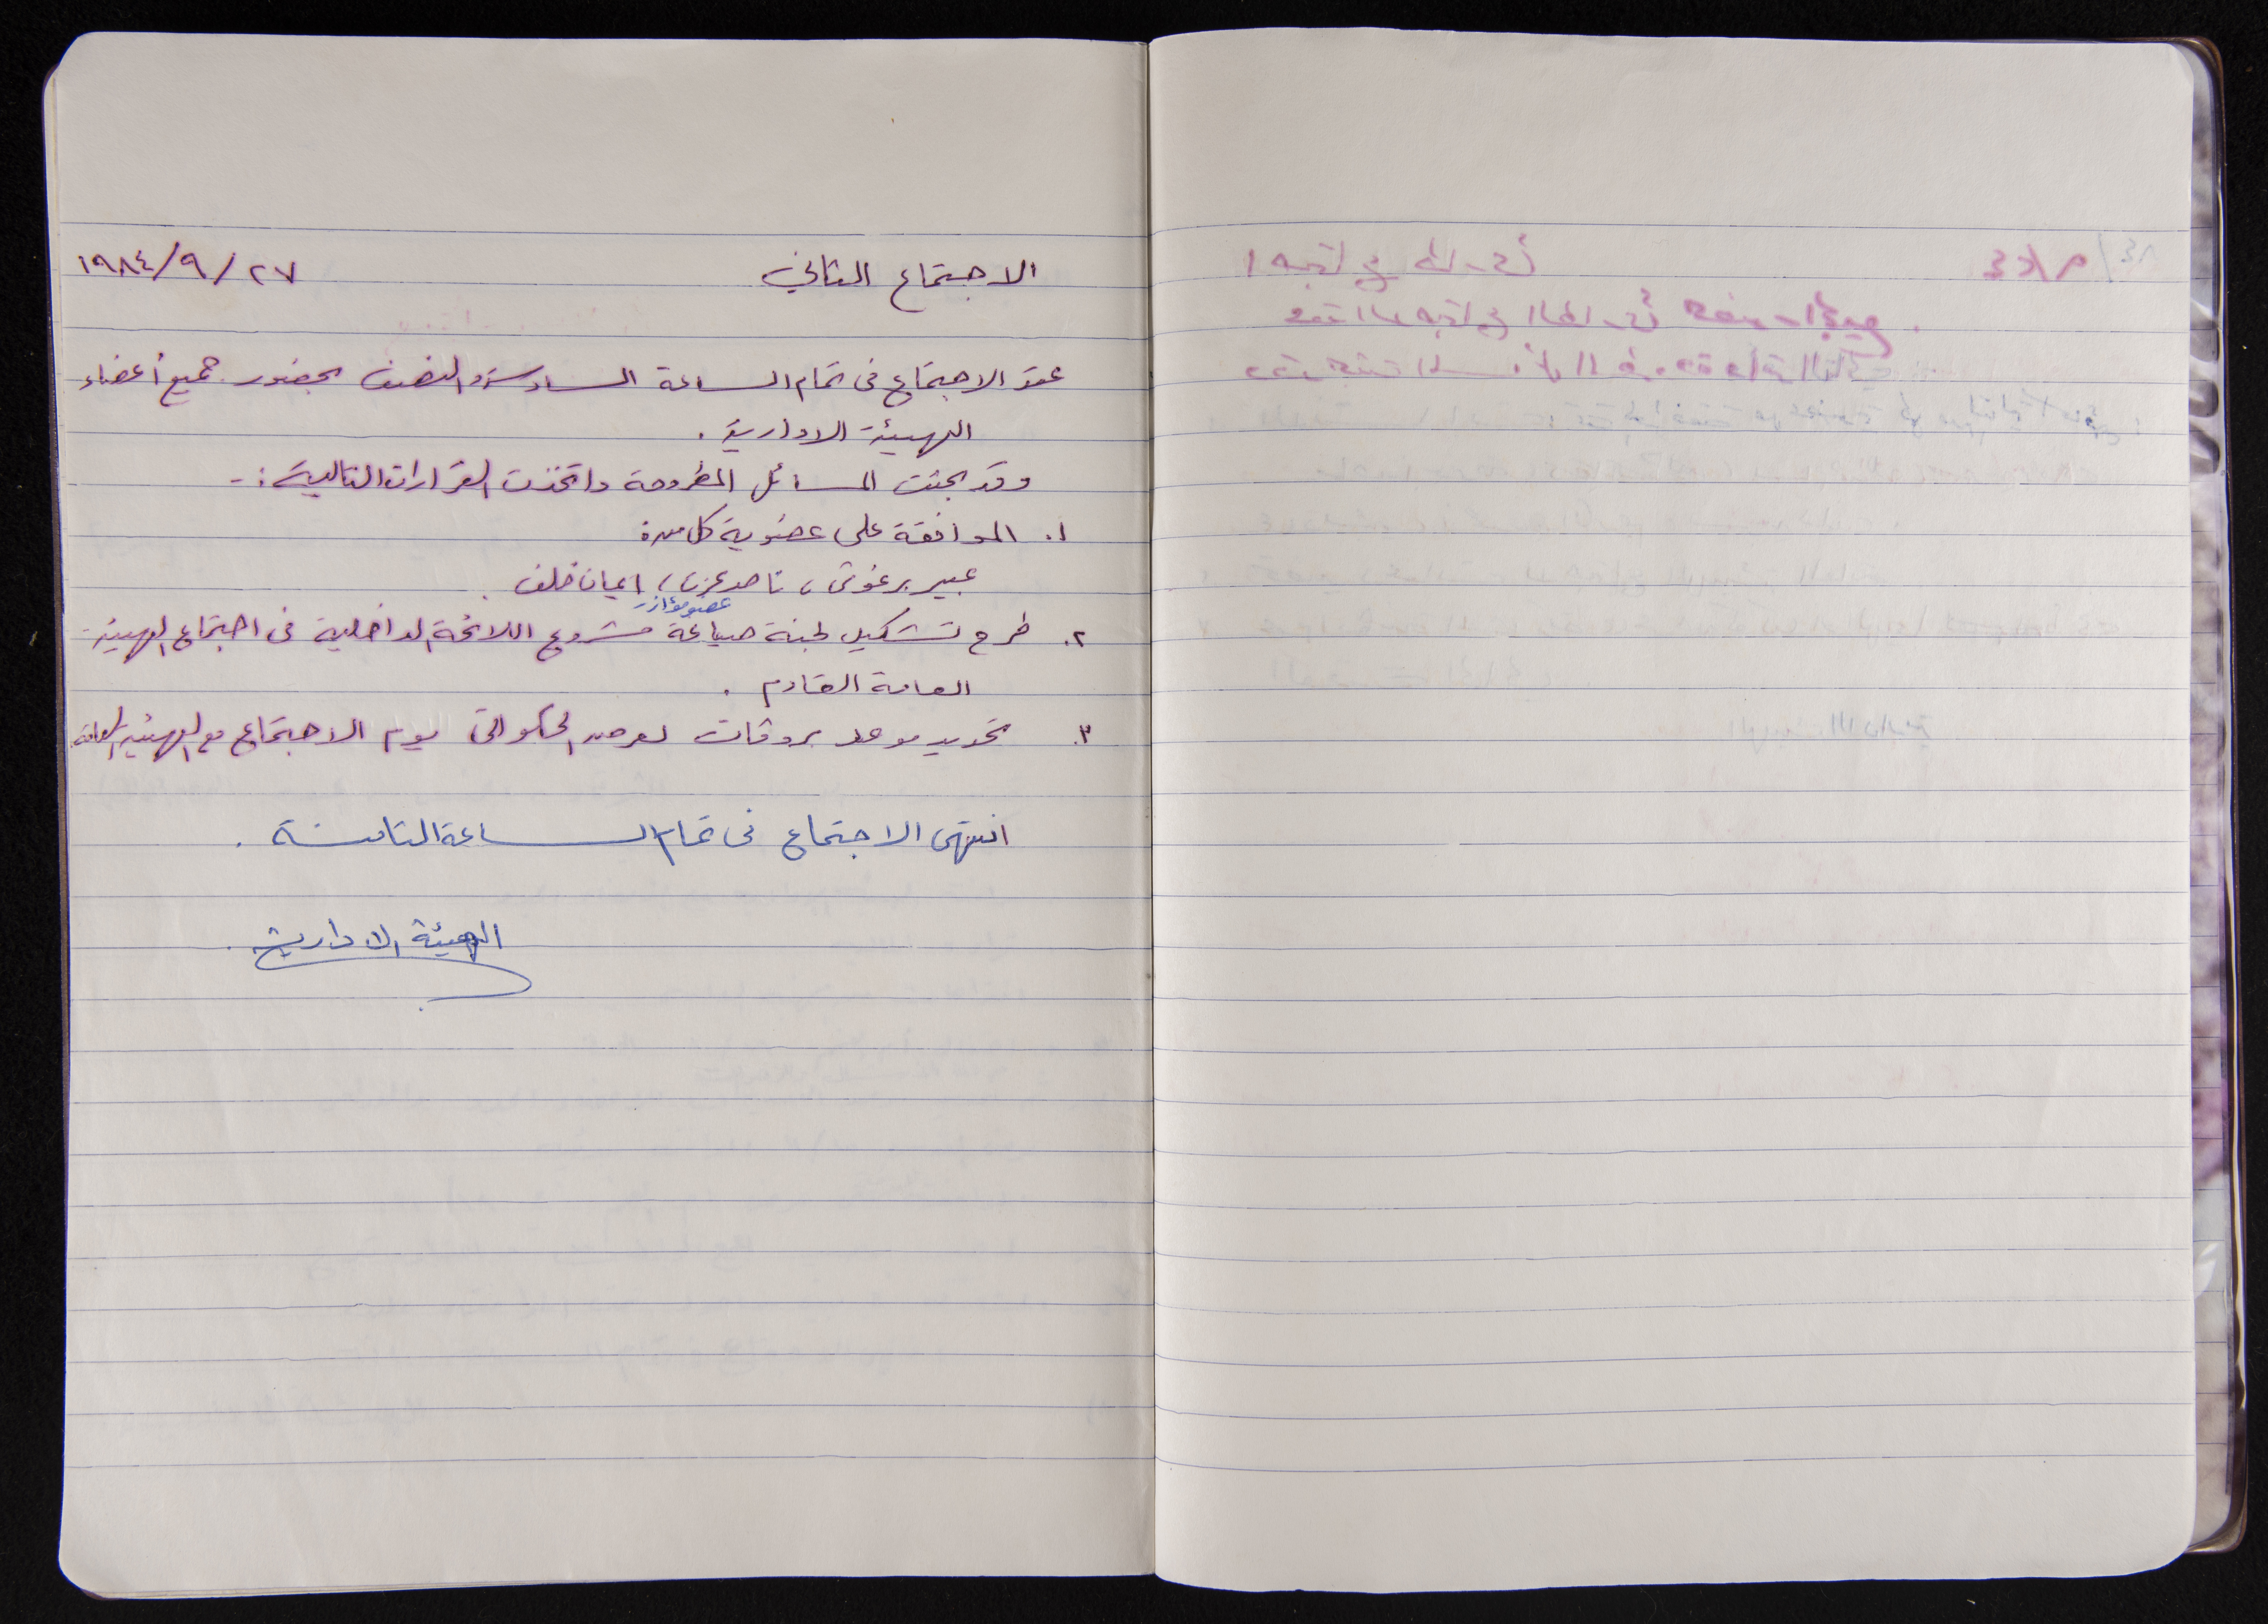 الاجتماع الثاني ٢٧/٩/١٩٨٤
عقد الاجتماع في تمام الساعة السادسة والنصف بحضور جميع أعضاء
الهيئة الادارية .
وقد بحثت المسائل المطروحة واتخذت القرارات التالية :-
١. الموافقة على عضوية كل من
عبير برغوثي ، ناصر عزت ، ايمان خلف .
عضو مؤازر
٢. طرح تشكيل لجنة صياغة مشروع اللائحة الداخلية في اجتماع الهيئة
العامة القادم .
٣. تحديد موعد بروفات لعرض الحكواتي يوم الاجتماع مع الهيئة العامة .
انتهى الاجتماع في تمام الساعة الثامنة .
الهيئة الادارية .